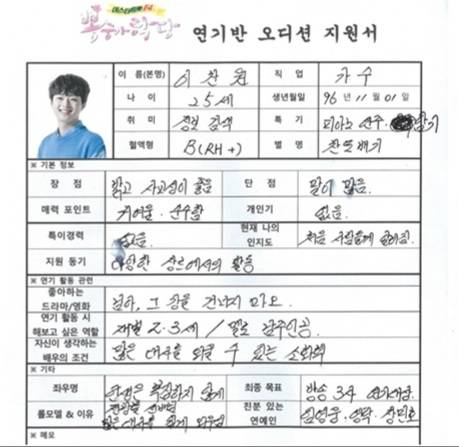 미스터트롯F4
뽕숭아학당 연기반 오디션 지원서
이 름(본명) 이찬원 직 업 가수
나 이 25세 생년월일 96년 11월 01일
취 미 정보 검색 특 기 피아노
혈액형 B(RH+) 별 명 찬또배기
※ 기본 정보
장 점 밝고 사교성이 좋음 단 점 말이 많음.
매력 포인트 귀여움. 순수함 개인기 없음.
특이경력 없음. 현재 나의 인지도
지원 동기 다양한 장르에서의 활동
※ 연기 활동 관련
좋아하는 드라마/영화 님아, 그 강을 건너지 마오.
연기 활동 시 해보고 싶은 역할 재벌 2·3세 / 멜로 남주인공
자신이 생각하는 배우의 조건 많은 대사를 외울 수 있는
※ 기타
좌우명 최종 목표 방송 3사 연기대상
롤모델 & 이유 친분 있는 연예인 임영웅·영탁·장민호
※ 메모